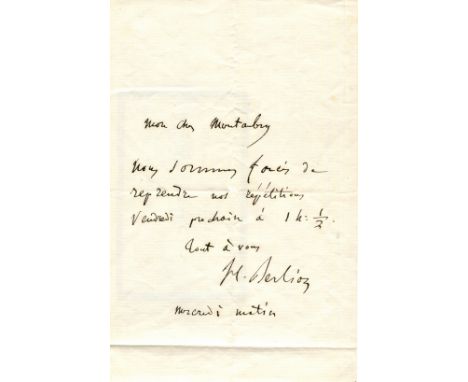 Mon cher Montaubry
Nous sommes forcés de
reprendre nos répétitions
Vendredi prochain à 1 h. 1/2.
Tout à vous
H. Berlioz
mercredi matin